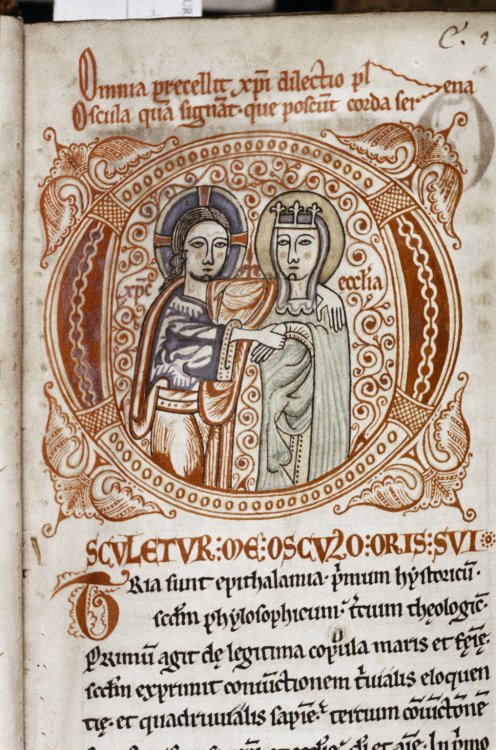 Omnia precellit xp̄i dilectio pl ena
Oscula quā signāt · que poscūt corda ser
xp̄c eccl'ia
O
SCVLETVR : ME : OSCVLO : ORIS : SVI
TRia sunt epithalamia · p̄mum hystoricū ·
scđm phylosophicum · t̄cium theologic̄ ·
Primū agit de legitima copula maris et fēīe
scđm exprimit coniūctionem t̄uialis eloquen
tię · et quadriuialis sapīe · tertium cōiūctionē